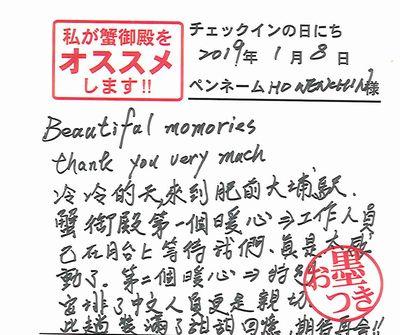 私が蟹御殿を
オススメ
します!!
チェックインの日にち
2019年 1月 8日
ペンネーム HO WENCHIN 様
Beautiful momories
thank you very much
冷冷的天,來到肥前大埔駅.
蟹御殿第一個暖心⇒工作人員
已在月台上等待我們.真是太感
動了.第二個暖心⇒特別
安排了中文人員更是親切.
此趟裝滿了甜甜回憶.期待再會!!
お墨
つき